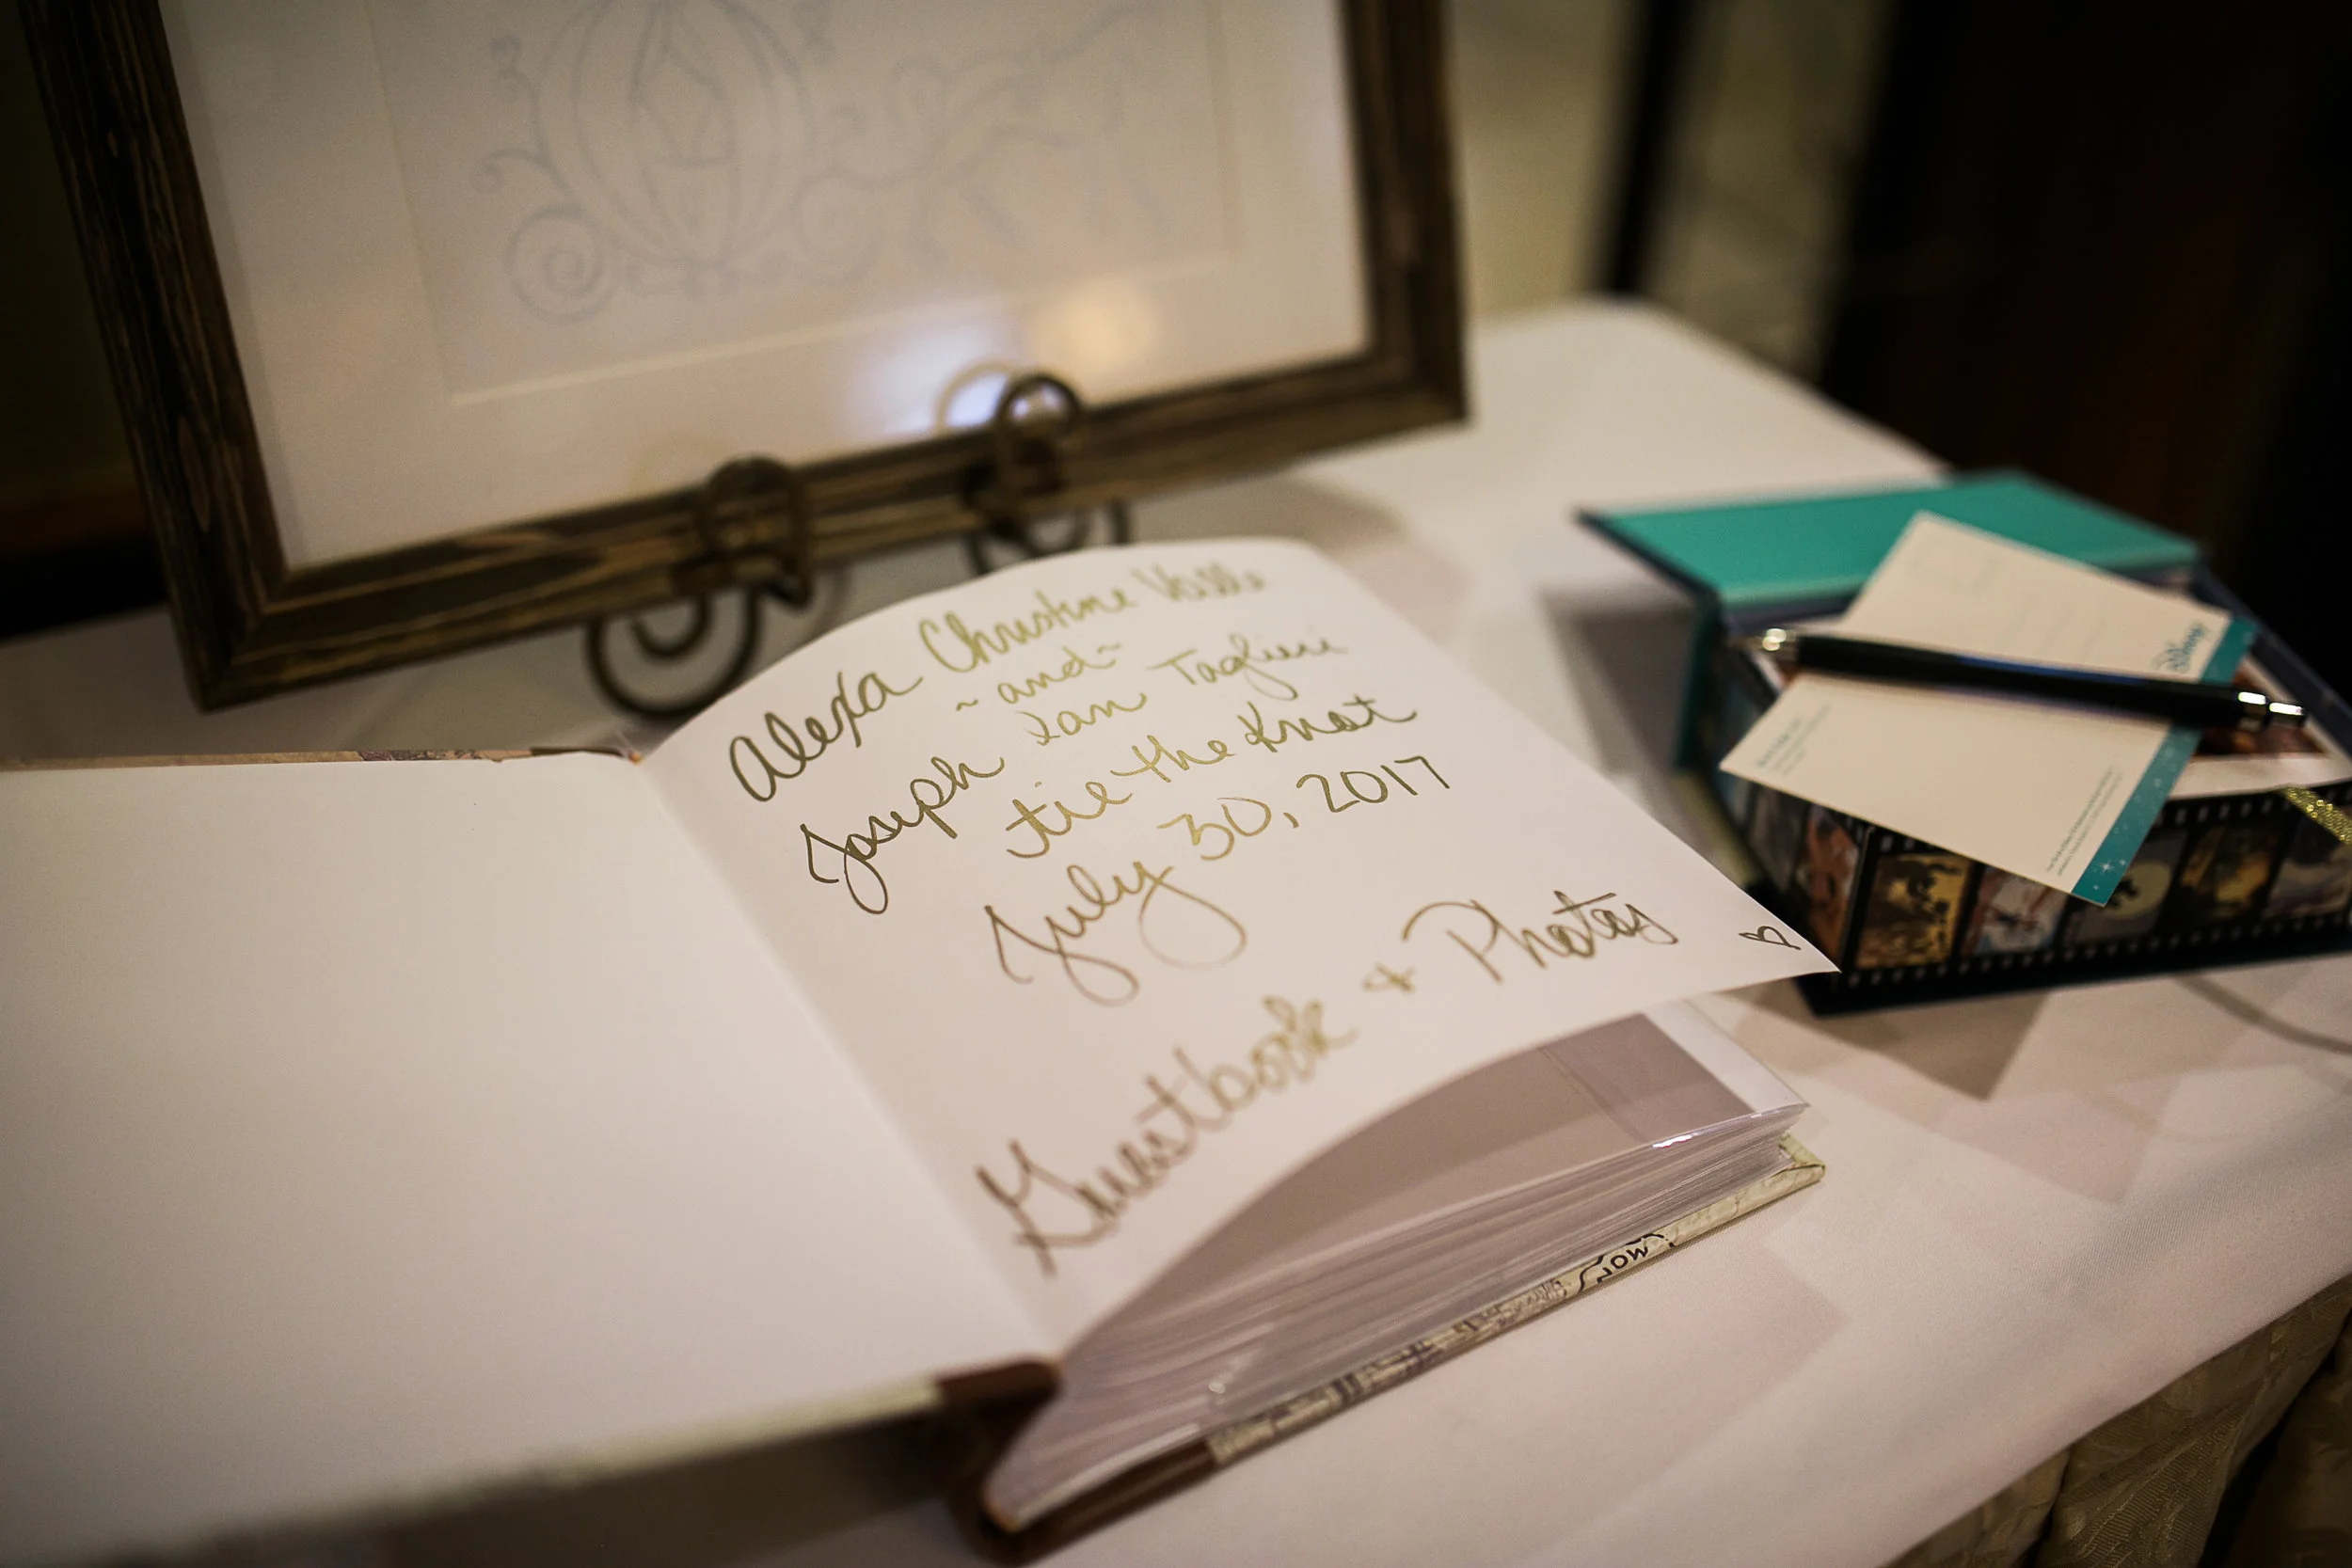 Alexa Christine Valle
~and~
Joseph Ian Taglieri
tie the Knot
July 30, 2017
Guestbook + Photos
Disney